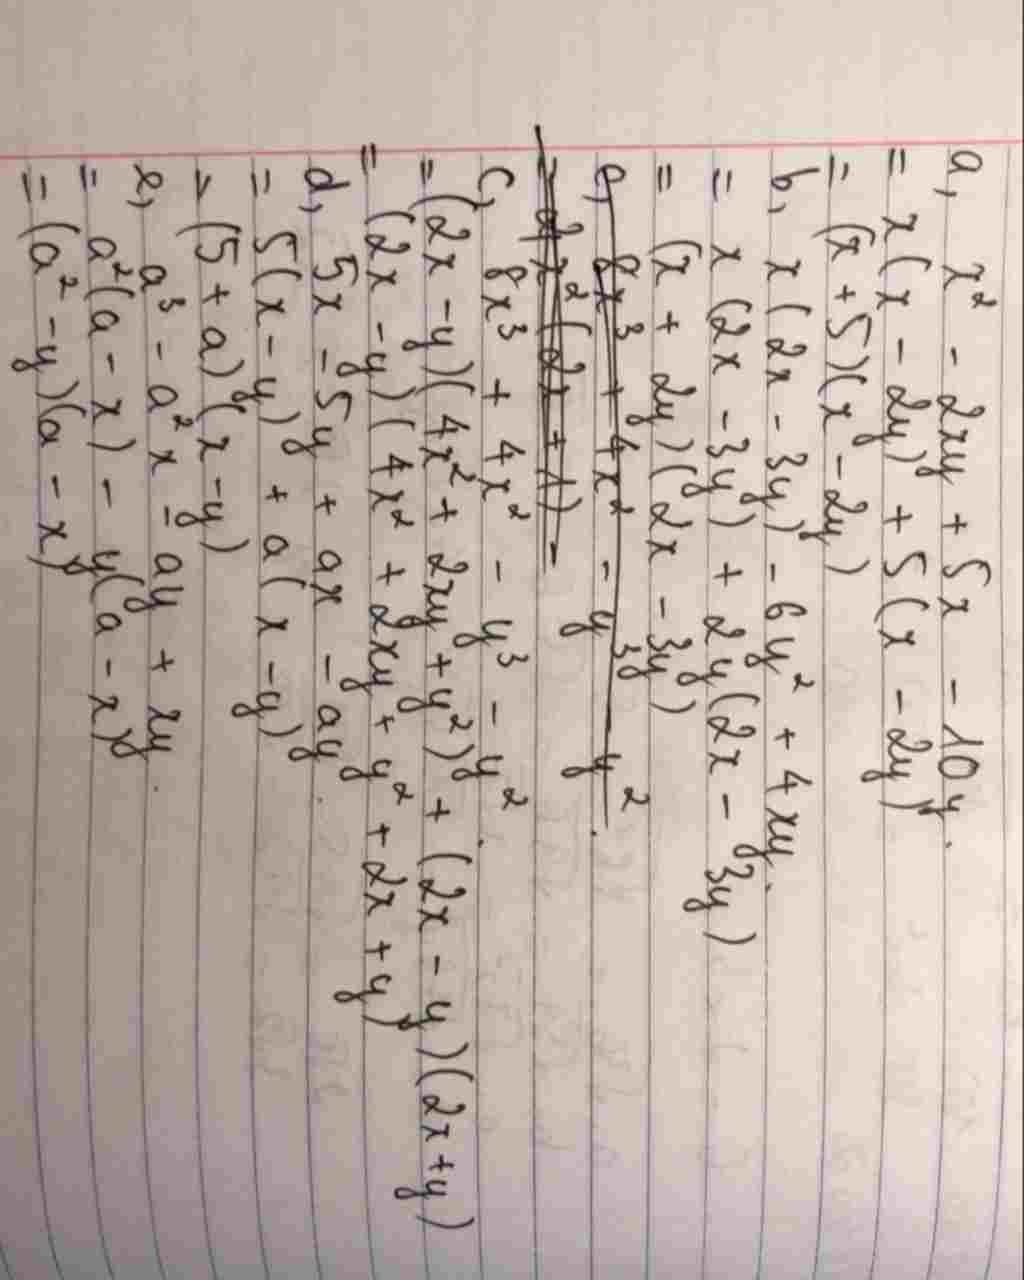 a, x² - 2xy + 5x - 10y.
= x(x - 2y) + 5(x - 2y)
= (x + 5)(x - 2y)
b, x(2x - 3y) - 6y² + 4xy.
= x(2x - 3y) + 2y(2x - 3y)
= (x + 2y)(2x - 3y)
c, 8x³ + 4x² - y³ - y².
= 2x²(2x + 1) -
c, 8x³ + 4x² - y³ - y².
= (2x - y)(4x² + 2xy + y²) + (2x - y)(2x + y)
= (2x - y)(4x² + 2xy + y² + 2x + y)
d, 5x - 5y + ax - ay.
= 5(x - y) + a(x - y)
= (5 + a)(x - y)
e, a³ - a²x - ay + xy.
= a²(a - x) - y(a - x)
= (a² - y)(a - x)